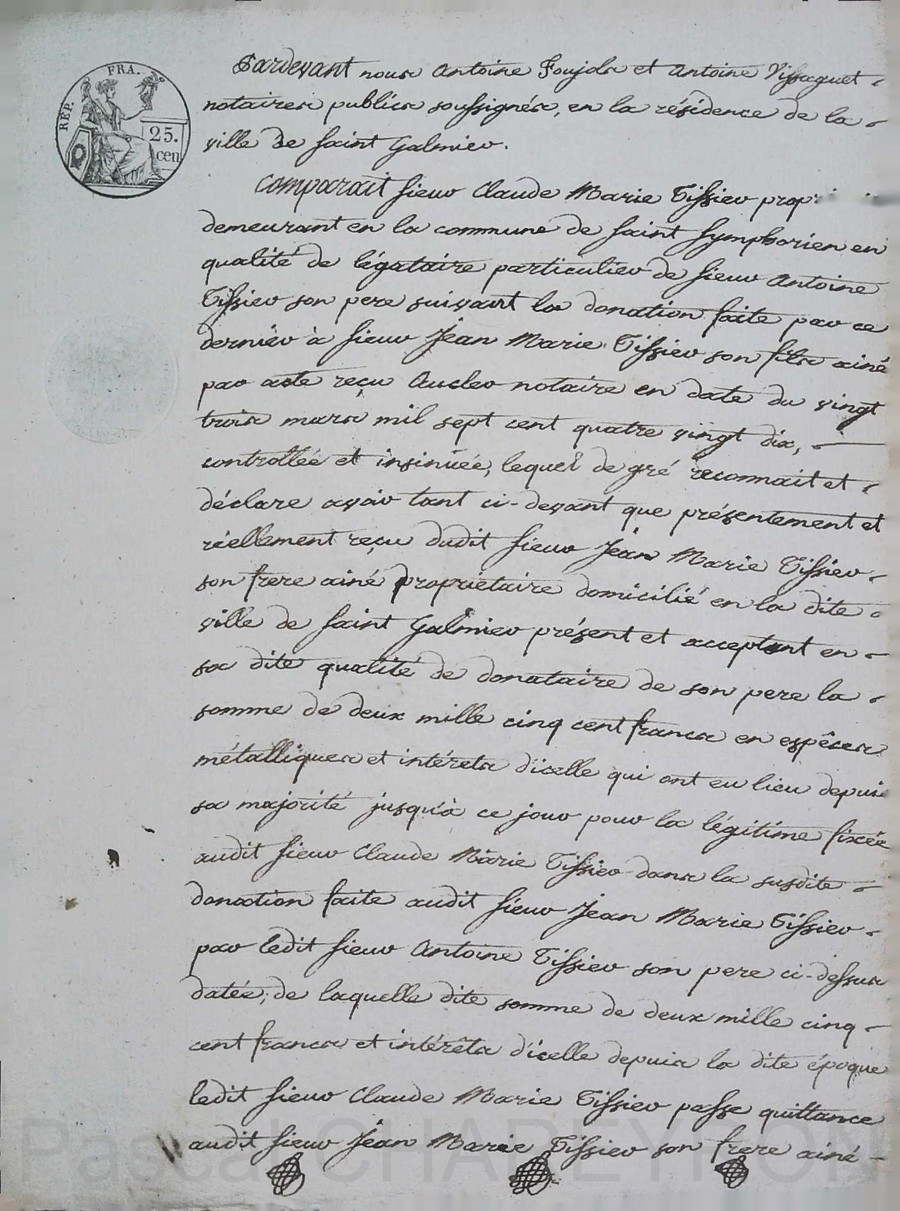 REP. FRA.
25.
cen
Pardevant nous Antoine Foujols et Antoine Vissaguet
notaires publics soussignés, en la résidence de la
ville de saint Galmier.
Comparait sieur Claude Marie Tissier propri
demeurant en la commune de saint Symphorien en
qualité de légataire particulier de sieur Antoine
Tissier son pere suivant la donation faite par ce
dernier à sieur Jean Marie Tissier son fils ainé
par acte reçu notaire en date du vingt
trois mars mil sept cent quatre vingt dix,
controllée et insinuée, lequel de gré reconnait et
déclare avoir tant ci-devant que présentement et
réellement reçu dudit sieur Jean Marie Tissier
son frere ainé propriétaire domicilié en la dite
ville de saint Galmier présent et acceptant en
sa dite qualité de donataire de son pere la
somme de deux mille cinq cent francs en espêces
métalliques et intérets d'icelle qui ont eu lieu depuis
sa majorité jusqu'à ce jour pour la légitime fixée
audit sieur Claude Marie Tissier dans la susdite
donation faite audit sieur Jean Marie Tissier
par ledit sieur Antoine Tissier son pere ci-dessus
datée, de laquelle dite somme de deux mille cinq
cent francs et intérêts d'icelle depuis la dite époque
ledit sieur Claude Marie Tissier passe quittance
audit sieur Jean Marie Tissier son frere ainé
Pascal CHAREYRON